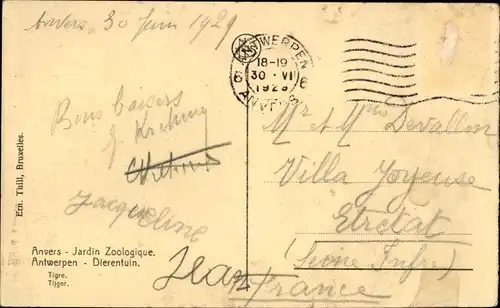 Anvers, 30 Juin 1929
ANTWERPEN
18-19
30 · VI
1929
6 6
ANVERS
Bons baisers
Jacqueline
Jean
Mr et Mme Devallon
Villa Joyeuse
Etretat
(Seine Infre)
France
Ern. Thill, Bruxelles.
Anvers - Jardin Zoologique.
Antwerpen - Dierentuin.
Tigre.
Tijger.